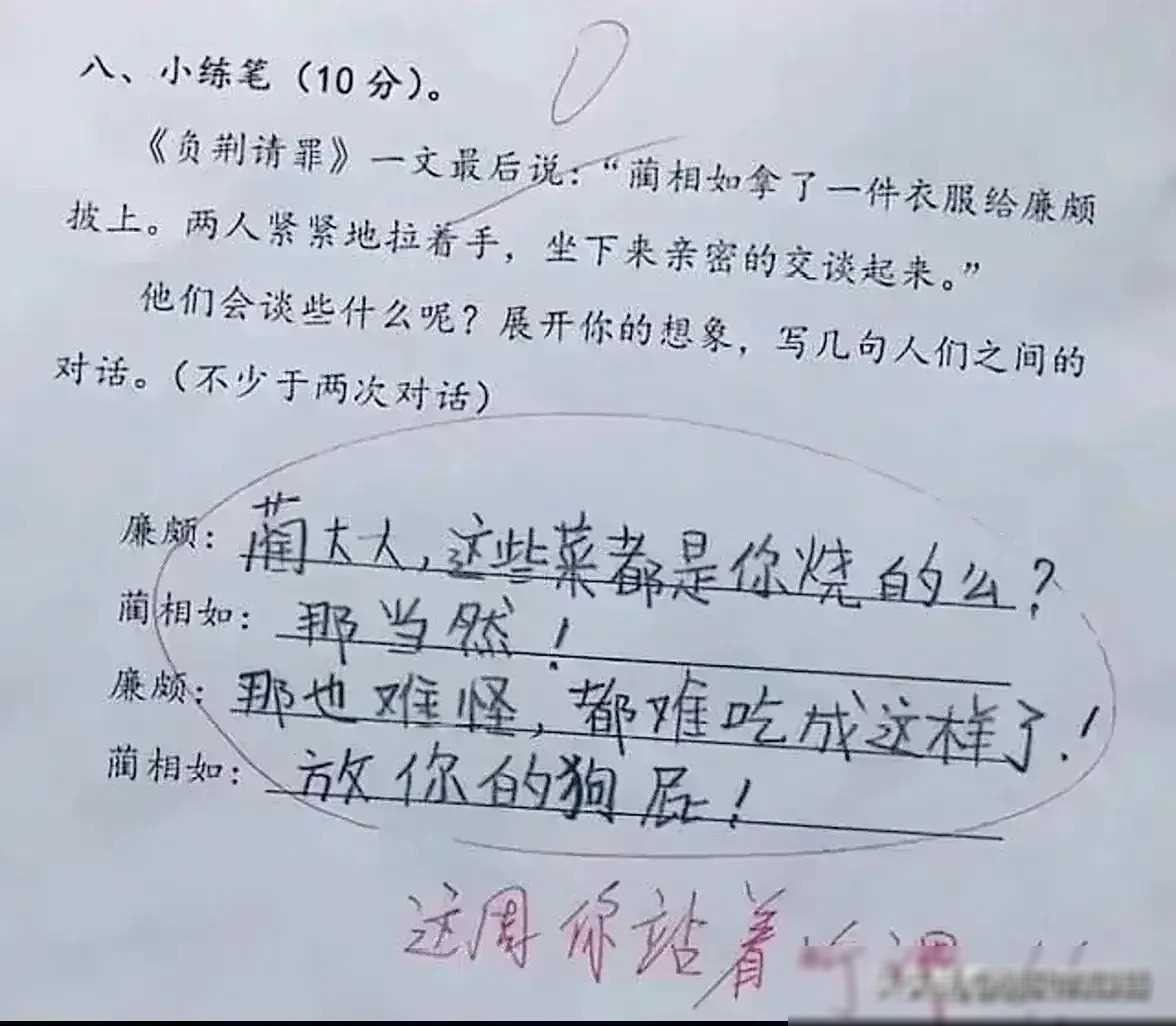 八、小练笔（10分）。
《负荆请罪》一文最后说：“蔺相如拿了一件衣服给廉颇
披上。两人紧紧地拉着手，坐下来亲密的交谈起来。”
他们会谈些什么呢？展开你的想象，写几句人们之间的
对话。（不少于两次对话）
廉颇：蔺大人，这些菜都是你烧的么？
蔺相如：那当然！
廉颇：那也难怪，都难吃成这样了！
蔺相如：放你的狗屁！
这周你站着